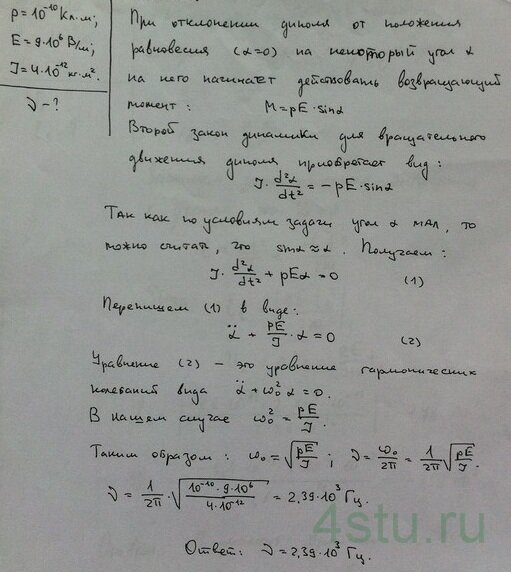 p = 10⁻¹⁰ Кл·м;
E = 9·10⁶ В/м;
J = 4·10⁻¹² кг·м².
ν - ?
При отклонении диполя от положения
равновесия (α=0) на некоторый угол α
на него начинает действовать возвращающий
момент: M = pE·sinα
Второй закон динамики для вращательного
движения диполя приобретает вид:
J·d²α/dt² = -pE·sinα
Так как по условиям задачи угол α мал, то
можно считать, что sinα≈α. Получаем:
J·d²α/dt² + pEα = 0 (1)
Перепишем (1) в виде:
α̈ + pE/J·α = 0 (2)
Уравнение (2) – это уравнение гармонических
колебаний вида α̈ + ω₀²α = 0.
В нашем случае ω₀² = pE/J.
Таким образом: ω₀ = √(pE/J); ν = ω₀/2π = 1/2π √(pE/J).
ν = 1/2π·√(10⁻¹⁰·9·10⁶/4·10⁻¹²) = 2,39·10³ Гц.
Ответ: ν = 2,39·10³ Гц.
4stu.ru